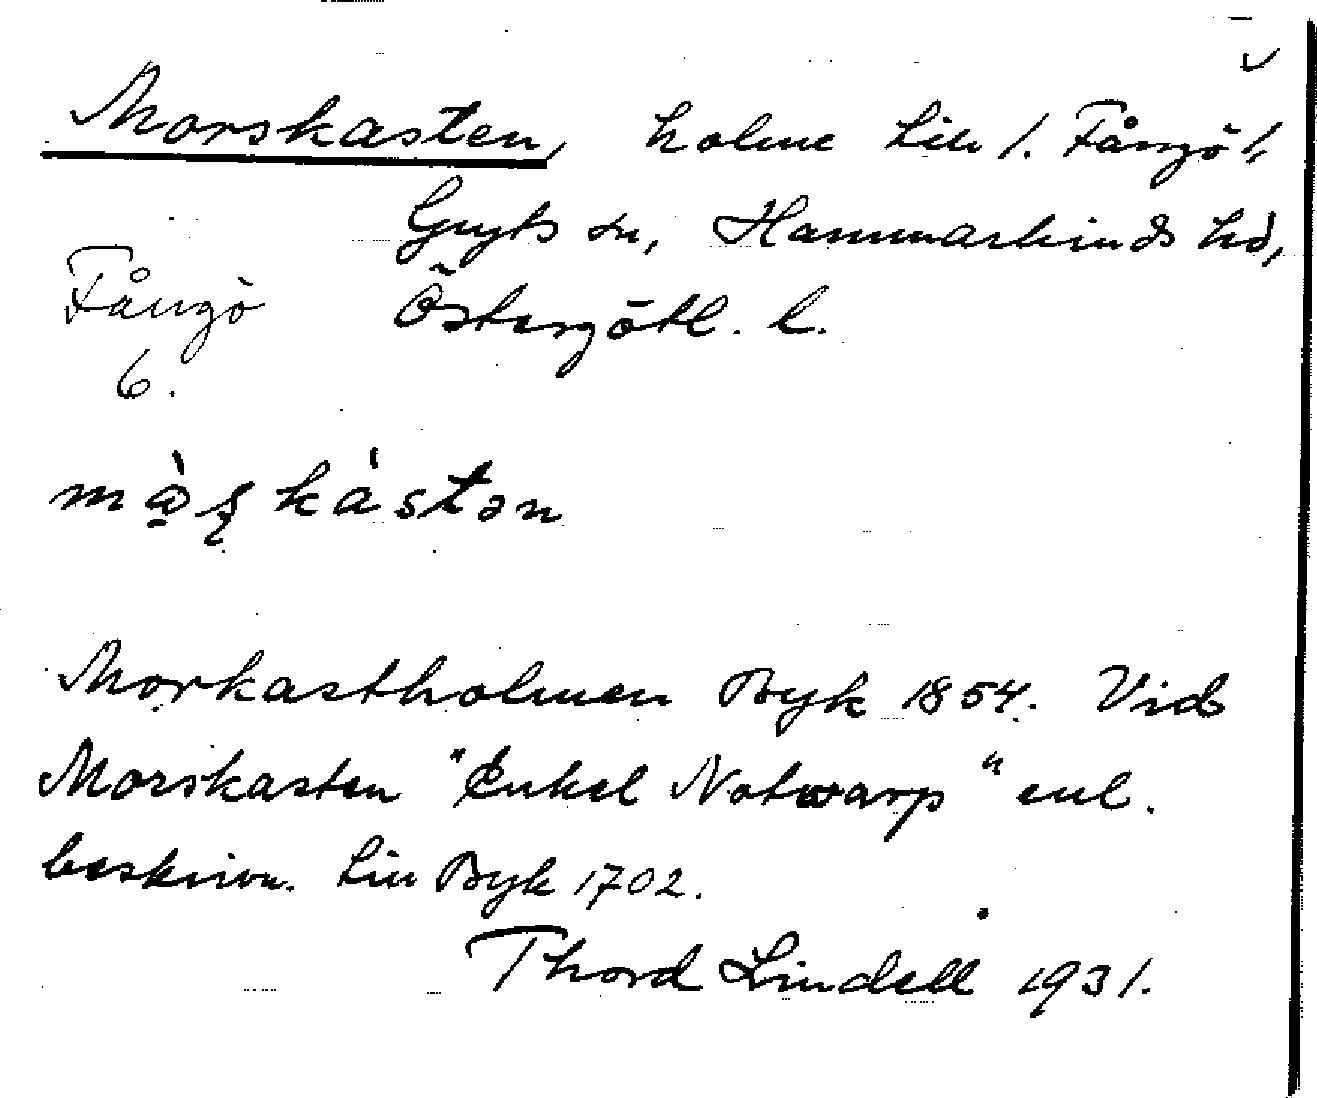 Morskasten, holme h:lu 1. Fångö 1,
Gryts sn, Hammarkinds hd,
Fångö Östergötl. l.
6.
mɑ̀ʂkástən
Morkastholmen Byk 1854. Vid
Morskasten "Enkel Notwarp" enl.
beskrivn. Lin Byk 1702.
Thord Lindell 1931.